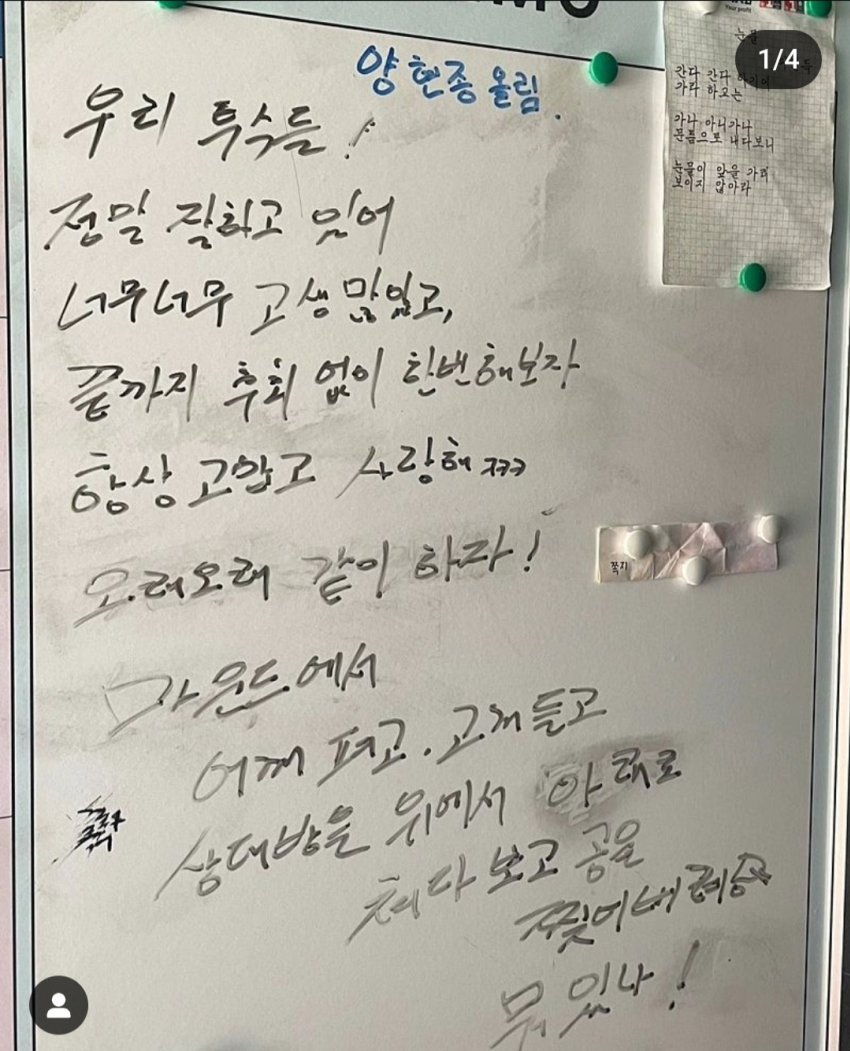 양현종 올림.
우리 투수들!
정말 잘하고 있어
너무너무 고생 많았고,
끝까지 후회 없이 한번해보자
항상 고맙고 사랑해 ㅋㅋㅋ
오래오래 같이 하자!
마운드에서
어깨 펴고. 고개 들고
상대방을 위에서 아래로
쳐다 보고 공을
찢어버려
뭐 있나!
Your profit
1/4
간다 간다
가라 하고는
가나 아니가나
문틈으로 내다보니
눈물이 앞을 가려
보이지 않아라
쪽지